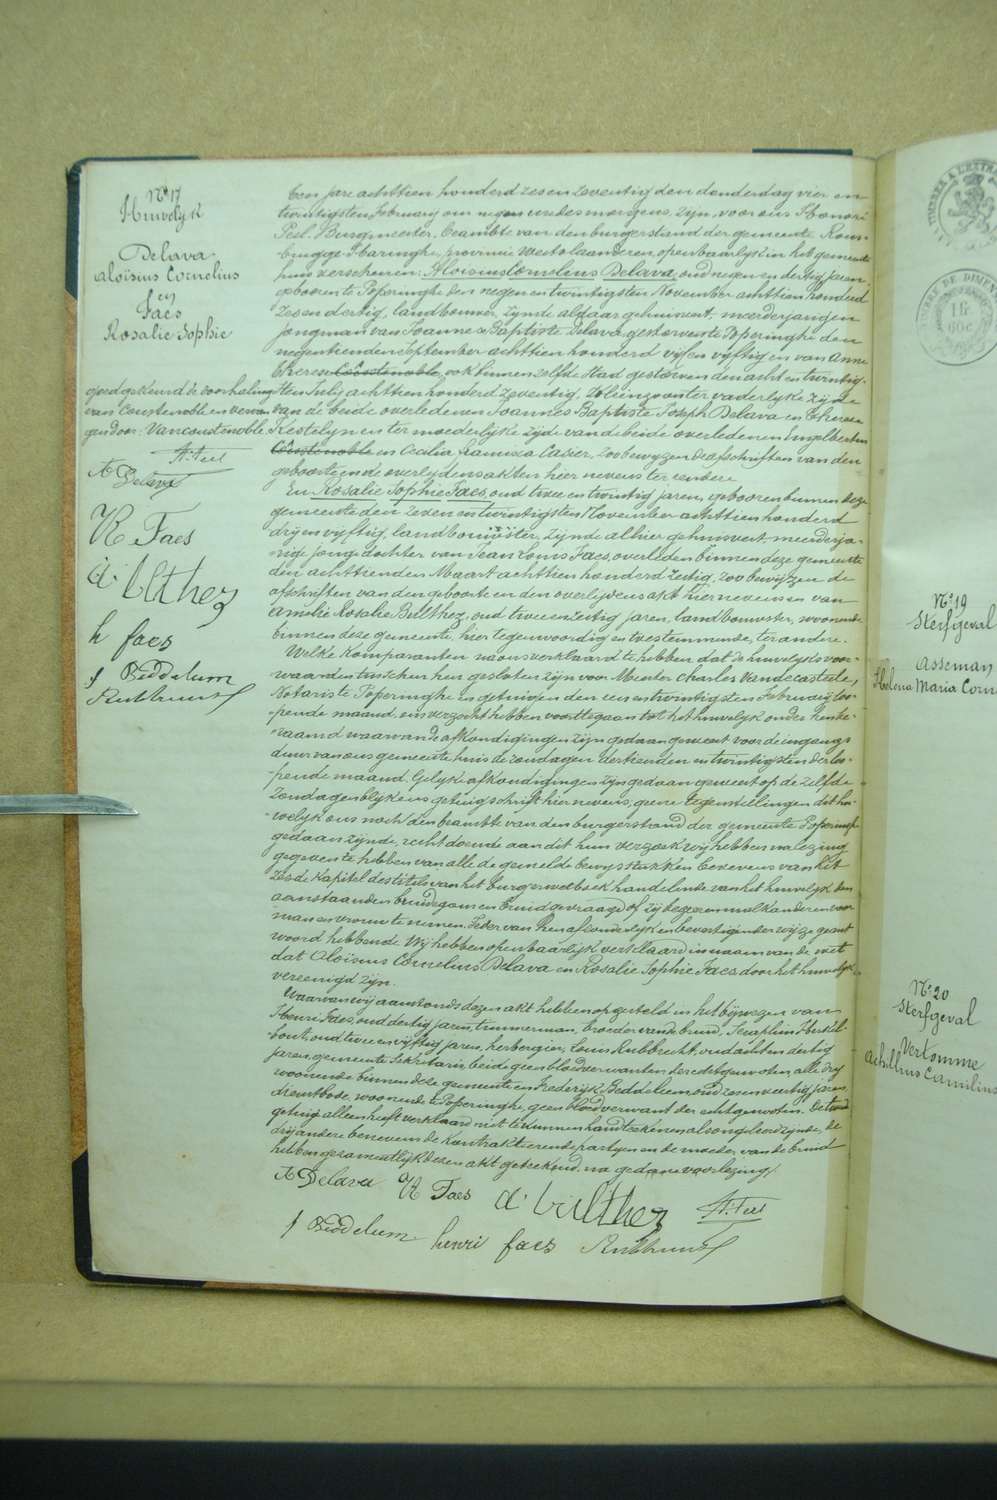 N° 17
Huwelyk
Delava
Aloïsius Cornelius
en
Faes
Rosalie Sophie
goedgekeurd de doorhaling
van Coustenoble en vervan
gen door: Vanconstenoble
H. Feel
A Delava
R Faes
a. bulthez
h faes
f Beddelum
Rubbrecht
Ten jare achttien honderd zes en zeventig den donderdag vier en
twintigsten February om negen ure des morgens, zijn, voor ons Honoré
Burgmeester, beambte van den burgerstand der gemeente Rous
brugge-Haringhe, provincie Westvlaanderen, openbaarlijk in het gemeente
huis verschenen: Aloïsius Cornelius Delava, oud negen en dertig jaren,
geboren te Poperinghe den negen en twintigsten November achttien honderd
zes en dertig, landbouwer, zynde aldaar gehuisvest, meerderjarigen
jongman van Joannes Baptiste Delava gestorven te Poperinghe den
negentienden September achttien honderd vijf en vijftig en van Anne
Therese Coustenoble, ook binnen zelfde stad gestorven den acht en twintig-
sten July achttien honderd zeventig, kleinzoon ter vaderlyke zyde
van de beide overledenen Joannes Baptiste Joseph Delava en Theresia
Kestelyn en ter moederlyke zyde van de beide overledenen Engelbertus
Coustenoble en Cecilia Francisca Casier, zoo bewyzen de afschriften van den
geboorte en de overlydensakten hier nevens ter eendere
En Rosalie Sophie Faes, oud twee en twintig jaren, geboren binnen deze
gemeente den zeven en twintigsten November achttien honderd
drij en vijftig, landbouwster, zynde alhier gehuisvest, meerderja-
rige jonge dochter van Jean Louis Faes, overleden binnen deze gemeente
den achttienden Maart achttien honderd zestig, zoo bewyzen de
afschriften van den geboorte en den overlydensakt hier nevens en van
Amelie Rosalie Bulthez, oud twee en zestig jaren, landbouwster, wonende
binnen deze gemeente, hier tegenwoordig en toestemmende, ter andere.
Welke komparanten na ons verklaard te hebben dat de huwelyksvoor-
waarden tusschen hen gesloten zyn voor Meester Charles Vandecasteele,
Notaris te Poperinghe en getuigen den een en twintigsten February loo-
pende maand, ons verzocht hebben voort te gaan tot het huwelyk onder hen be-
raamd waarvan de afkondigingen zyn gedaan geweest voor de ingangs
deur van ons gemeentehuis de zondagen dertienden en twintigsten der loo-
pende maand. Gelyke afkondigingen zyn gedaan geweest op de zelfde
zondagen blykens getuigschrift hier nevens, geene tegenstellingen dit hu-
welyk ons noch den beambte van den burgerstand der gemeente Poperinghe
gedaan zynde, recht doende aan dit hun verzoek wij hebben na lezing
gegeven te hebben van alle de gemelde bewysstukken benevens van het
zesde kapitel des titels van het burgerwetboek handelende van het huwelyk den
aanstaanden bruidegom en bruid gevraagd of zij begeeren malkanderen voor
man en vrouw te nemen. Ieder van hen afzonderlyk en bevestigender wyze geant
woord hebbende. Wij hebben openbaarlyk verklaard in naam van de wet
dat Aloïsius Cornelius Delava en Rosalie Sophie Faes door het huwelyk
vereenigd zyn.
Waarvan wij aanstonds dezen akt hebben opgesteld in het bywezen van
Henri Faes, oud dertig jaren, timmerman, broeder van de bruid, Seraphin
oud twee en vijftig jaren, herbergier, Louis Rubbrecht, oud acht en dertig
jaren, gemeente Sekretaris, beide geen bloedverwanten der echtgenooten, alle drij
wonende binnen deze gemeente en Frederijk Beddeleem oud zes en veertig jaren,
dienstbode, wonende te Poperinghe, geen bloedverwant der echtgenooten. De tweede
getuig alleen heeft verklaard niet te kunnen handteekenen als ongeleerd zynde, de
drij andere benevens de kontrakteerende partyen en de moeder van de bruid
hebben gezamentlijk dezen akt geteekend, na gedane voorlezing.
A Delava R Faes a. bulthez H. Feel
f Beddelum henri faes Rubbrecht
N° 19
Sterfgeval
Asseman
Helena Maria
N° 20
Sterfgeval
Verkomme
Achillius Camilius